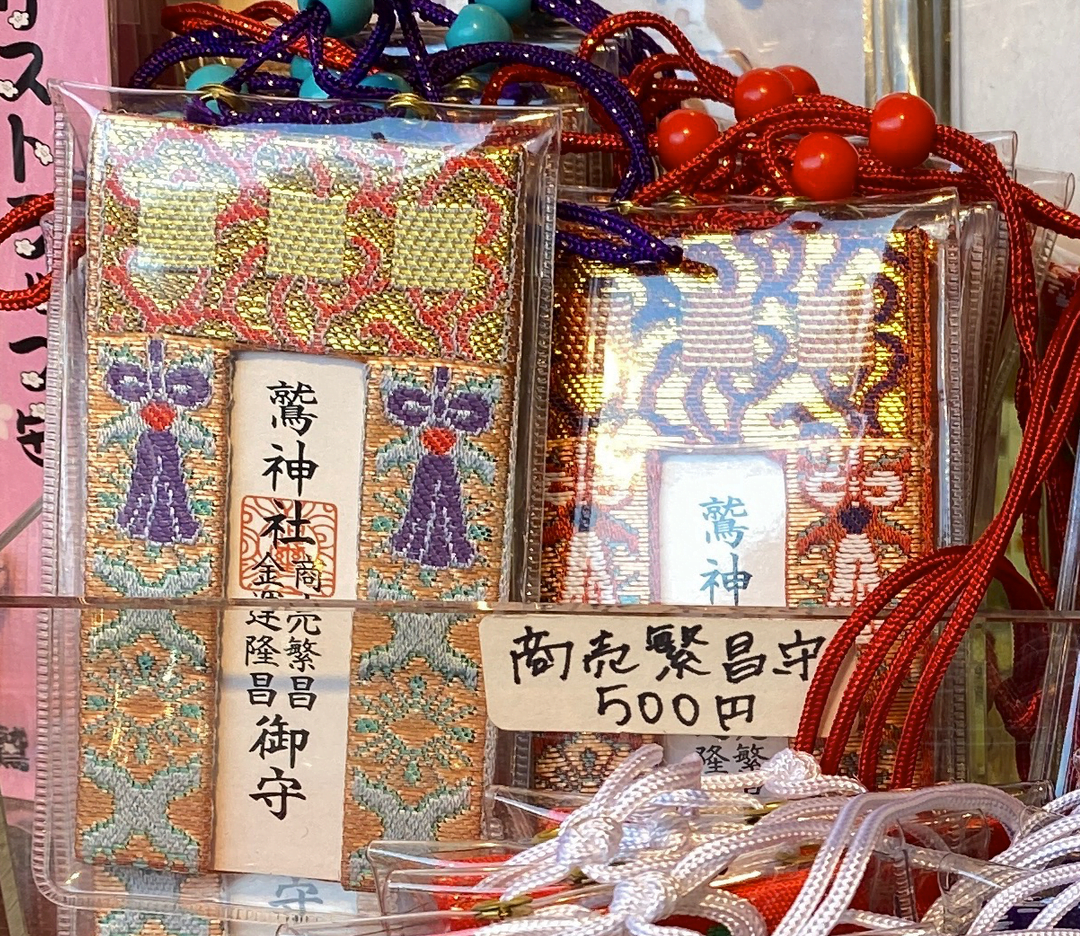 ガストラップ守
鷲神社
商売繁昌
金運隆昌
御守
鷲神
商売繁昌守
500円
売繁
隆
守
鷲